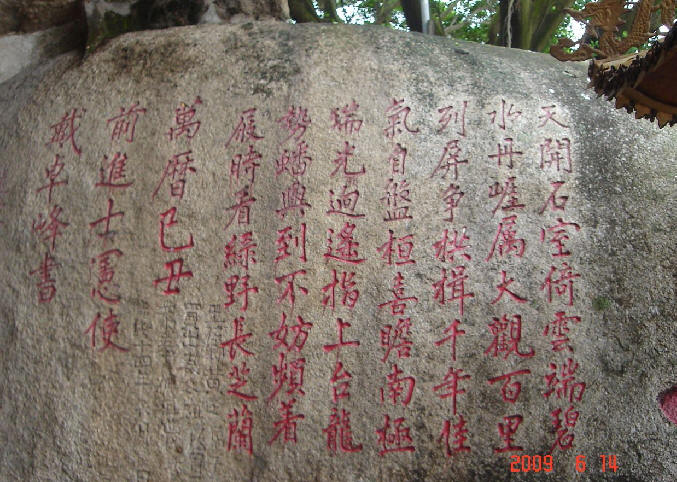 天開石室倚雲端碧
水丹崕属大觀百里
列屏争拱揖千年佳
氣自盤桓喜瞻南極
瑞光迥遙指上台龍
勢蟠興到不妨頻着
屐時看綠野長芝蘭
萬曆己丑
前進士憲使
戴卓峰書
2009 6 14